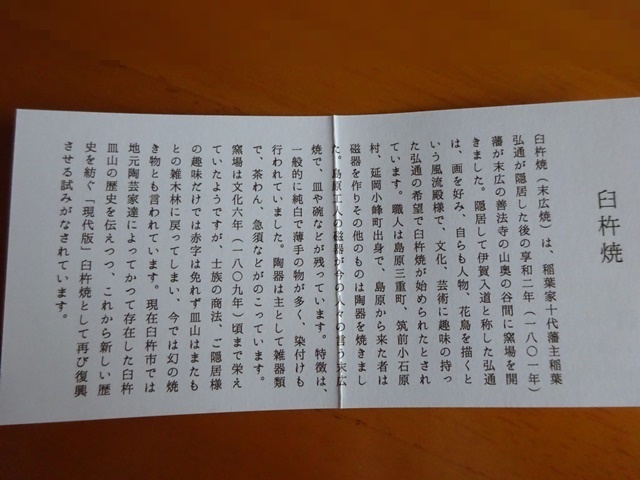 臼杵焼
臼杵焼（末広焼）は、稲葉家十代藩主稲葉
弘通が隠居した後の享和二年（一八〇一年）
藩が末広の善法寺の山奥の谷間に窯場を開
きました。隠居して伊賀入道と称した弘通
は、画を好み、自らも人物、花鳥を描くと
いう風流殿様で、文化、芸術に趣味の持っ
た弘通の希望で臼杵焼が始められたとされ
ています。職人は島原三重町、筑前小石原
村、延岡小峰町出身で、島原から来た者は
磁器を作りその他のものは陶器を焼きまし
た。島原工人の磁器が今の人々の言う末広
焼で、皿や碗などが残っています。特徴は、
一般的に純白で薄手の物が多く、染付けも
行われていました。陶器は主として雑器類
で、茶わん、急須などがのこっています。
窯場は文化六年（一八〇九年）頃まで栄え
ていたようですが、士族の商法、ご隠居様
の趣味だけでは赤字は免れず皿山はまたも
との雑木林に戻ってしまい、今では幻の焼
き物とも言われています。現在臼杵市では
地元陶芸家達によってかつて存在した臼杵
皿山の歴史を伝えつつ、これから新しい歴
史を紡ぐ「現代版」臼杵焼として再び復興
させる試みがなされています。